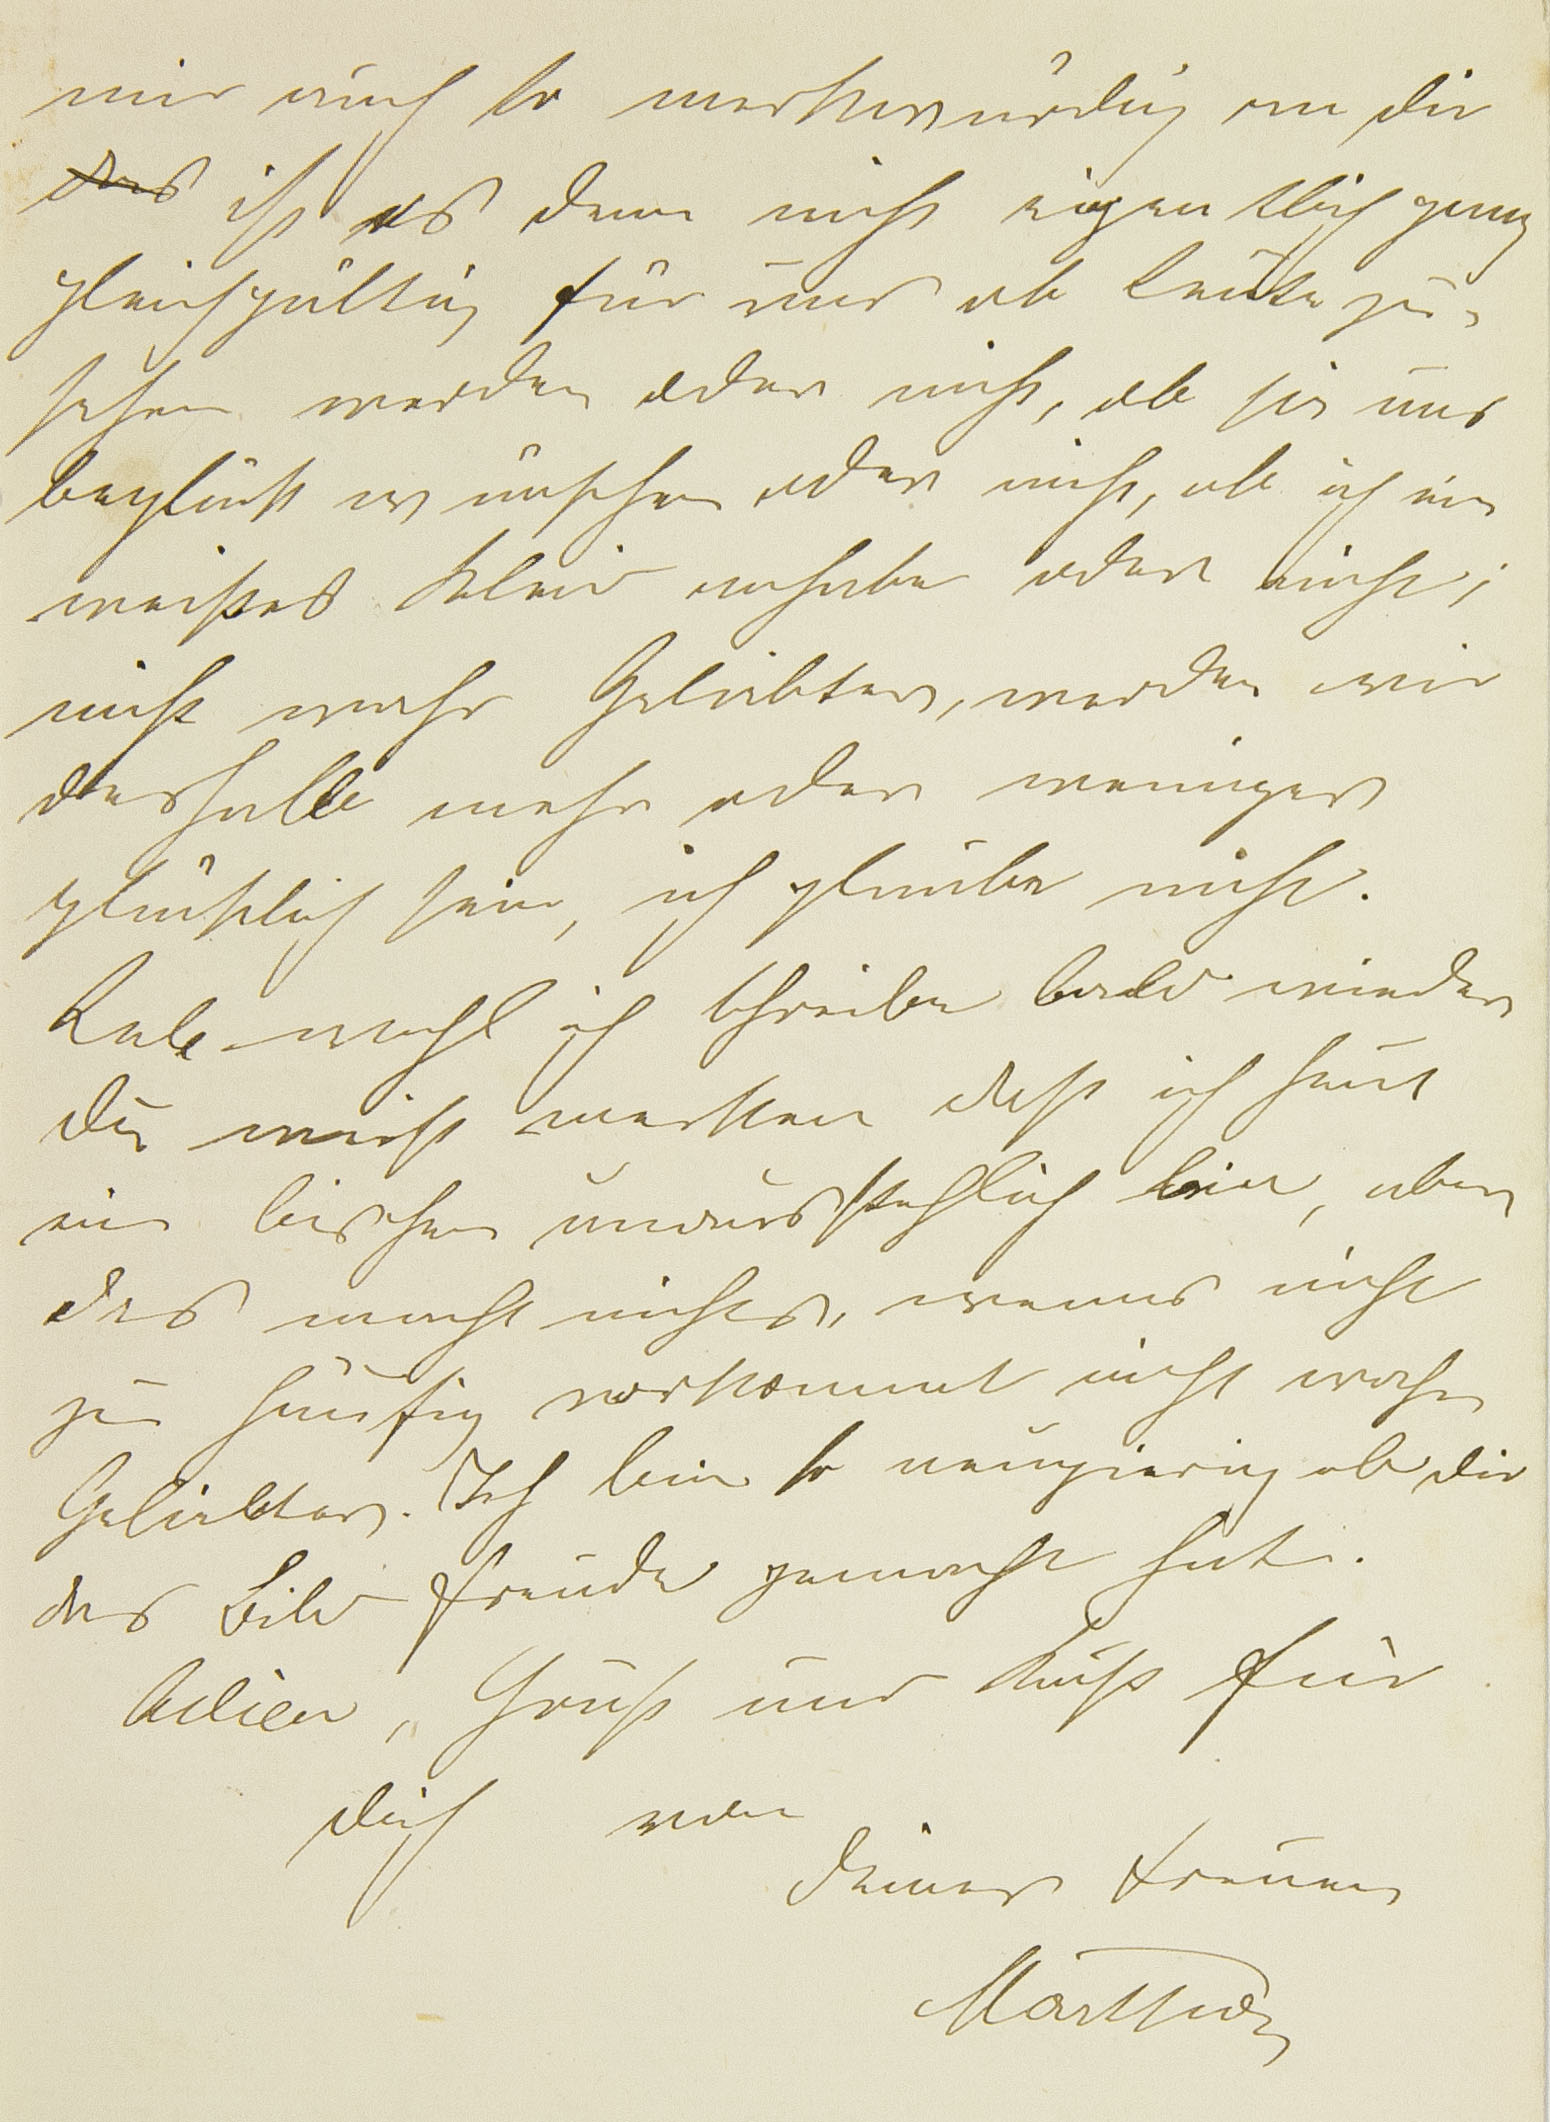 mir auch so merkwürdig an dir
das ist es denn nicht eigentlich ganz
gleichgültig für uns ob Leute zu-
sehen werden oder nicht, ob sie uns
beglückwünschen oder nicht, ob ich ein
weißes Kleid anhabe oder nicht;
nicht wahr Geliebter, werden wir
deshalb mehr oder weniger
glücklich sein, ich glaube nicht.
Lebe wohl ich schreibe bald wieder
du wirst merken daß ich heut
ein bischen unausstehlich bin, aber
das macht nichts, wenns nicht
zu häufig vorkommt nicht wahr
Geliebter. Ich bin so neugierig ob dir
das Bild Freude gemacht hat.
Adieu, Gruß und Kuß für
dich von
deiner treuen
Martha